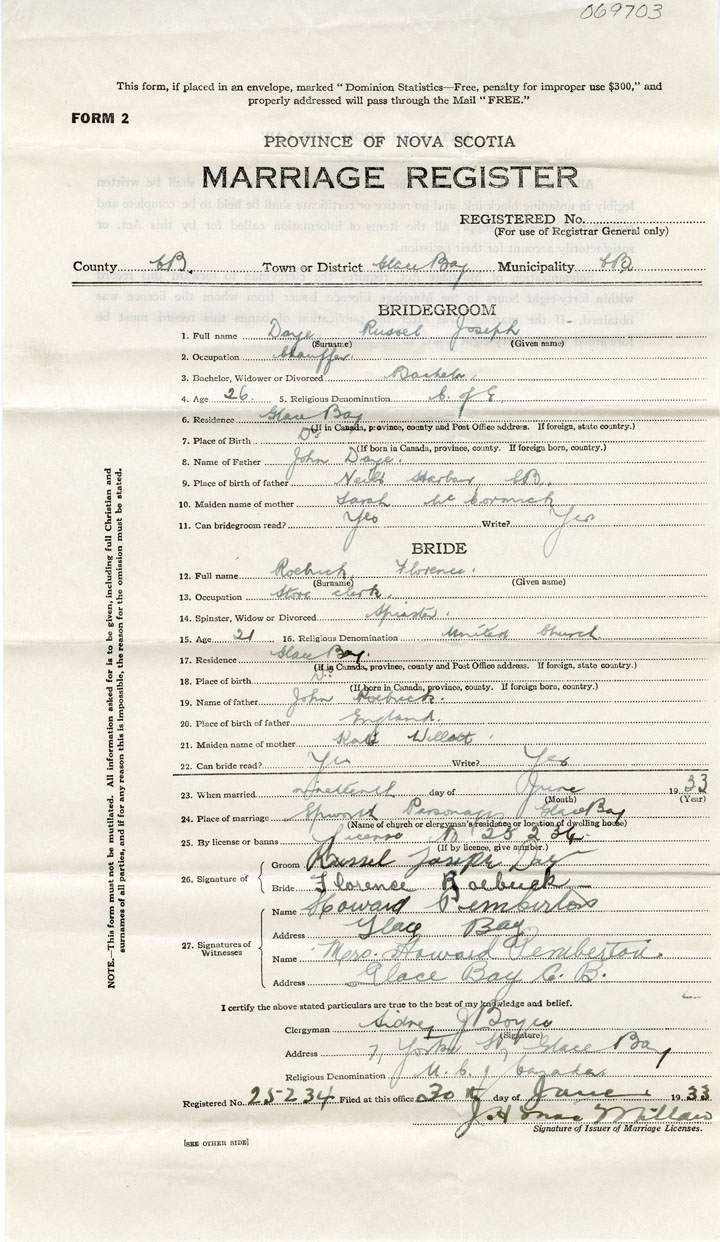 069703
This form, if placed in an envelope, marked "Dominion Statistics—Free, penalty for improper use $300," and
properly addressed will pass through the Mail "FREE."
FORM 2
PROVINCE OF NOVA SCOTIA
MARRIAGE REGISTER
REGISTERED No.
(For use of Registrar General only)
County C.B. Town or District Glace Bay Municipality C B
BRIDEGROOM
1. Full name Daye Russel Joseph
(Surname) (Given name)
2. Occupation Chauffer
3. Bachelor, Widower or Divorced Bachelor
4. Age 26. 5. Religious Denomination C. of E
6. Residence Glace Bay
(If in Canada, province, county and Post Office address. If foreign, state country.)
7. Place of Birth Do
(If born in Canada, province, county. If foreign born, country.)
8. Name of Father John Daye.
9. Place of birth of father Neil's Harbor C.B.
10. Maiden name of mother Sarah Mc Cormick
11. Can bridegroom read? Yes Write? Yes
BRIDE
12. Full name Roebuck, Florence.
(Surname) (Given name)
13. Occupation Store clerk.
14. Spinster, Widow or Divorced Spinster.
15. Age 21 16. Religious Denomination United Church
17. Residence Glace Bay.
(If in Canada, province, county and Post Office address. If foreign, state country.)
18. Place of birth Do
(If born in Canada, province, county. If foreign born, country.)
19. Name of father John Roebuck.
20. Place of birth of father England.
21. Maiden name of mother Kate
22. Can bride read? Yes Write? Yes
23. When married nineteenth day of June 1933
(Month) (Year)
24. Place of marriage Epworth Parsonage, Glace Bay
(Name of church or clergyman's residence or location of dwelling house)
25. By license or banns License
(If by licence, give number.)
26. Signature of
Groom Russel Joseph Day
Bride Florence Roebuck
27. Signatures of
Witnesses
Name Howard Pemberton
Address Glace Bay
Name Mrs. Howard Pemberton.
Address Glace Bay C. B.
I certify the above stated particulars are true to the best of my knowledge and belief.
Clergyman Sidney J Boyce
(Signature)
Address 7, York St, Glace Bay
Religious Denomination U. C. of Canada
Registered No. 25234 Filed at this office 30th day of June 1933
J H MacMillan
Signature of Issuer of Marriage Licenses.
[SEE OTHER SIDE]
NOTE.—This form must not be mutilated. All information asked for is to be given, including full Christian and
surnames of all parties, and if for any reason this is impossible, the reason for the omission must be stated.